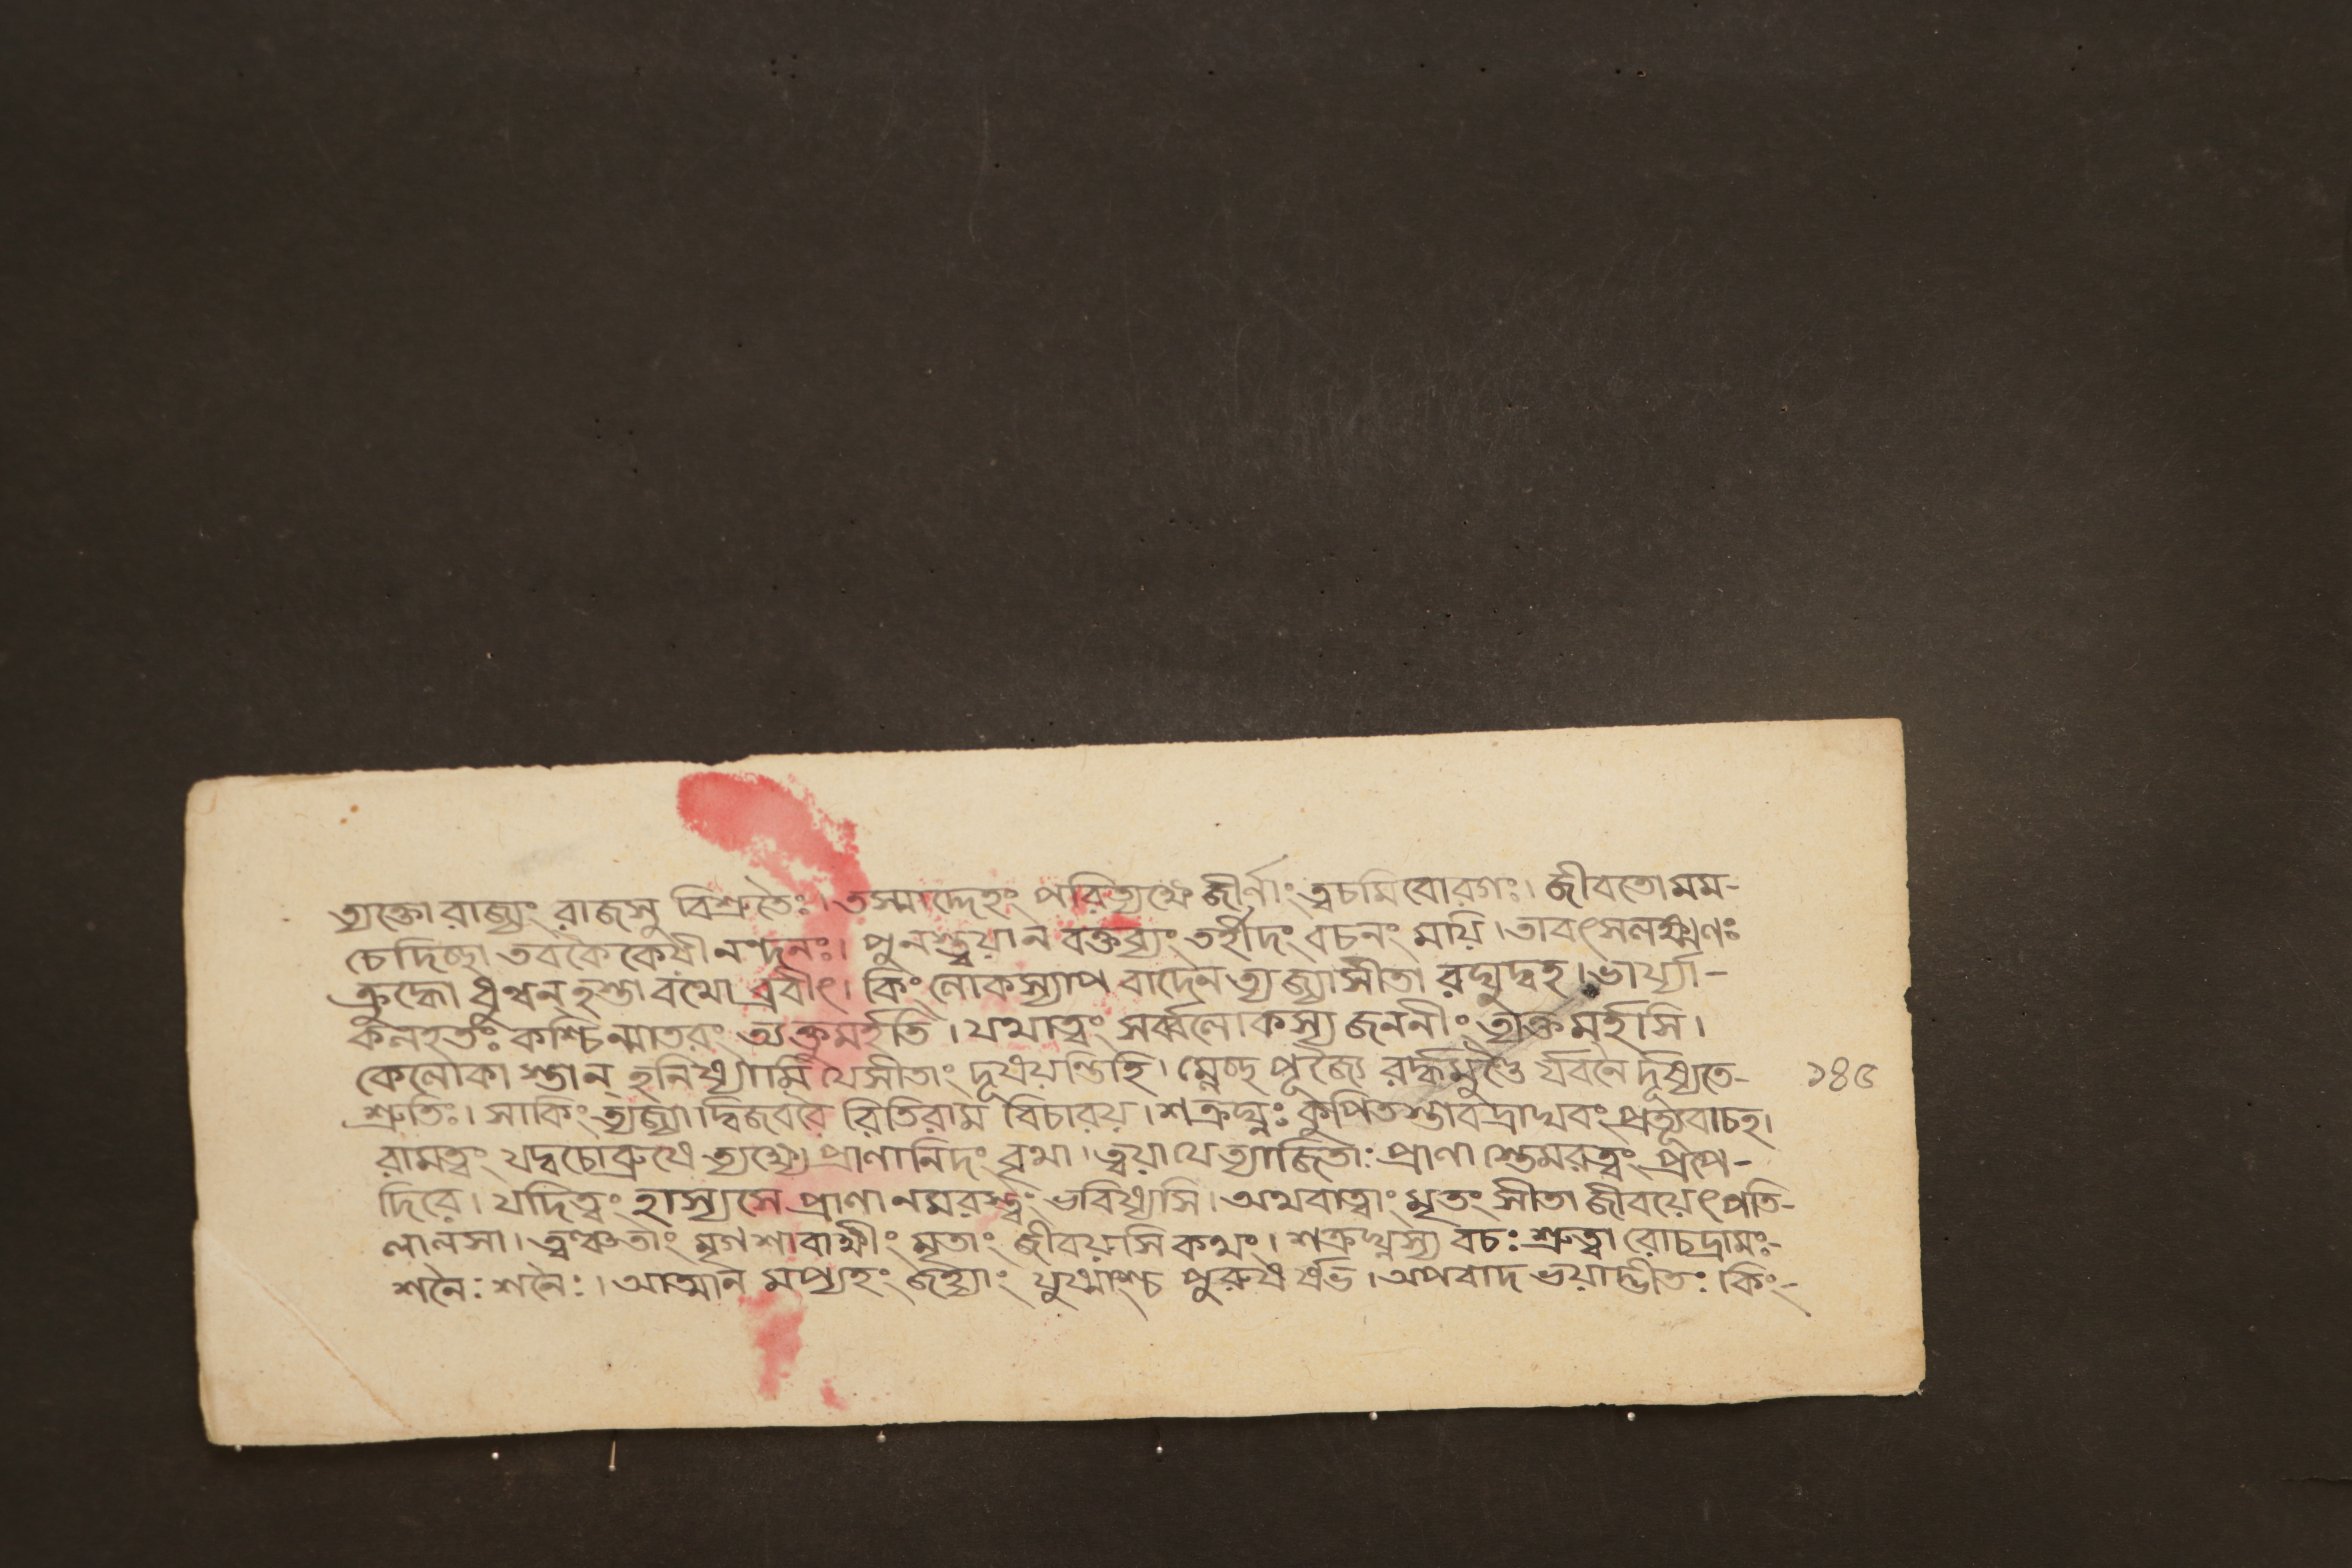 ত্যক্তো রাজ্যং রাজসু বিশ্রুতৈঃ। তস্মাদ্দেহং পরিত্যক্ষ্যে জীর্ণাং ত্বচমিবোরগঃ। জীবতো মম-
চেদিচ্ছা তব কৈকেয়ীনন্দনঃ। পুনস্ত্বয়া ন বক্তব্যং তর্হীদং বচনং ময়ি। তাবৎ স লক্ষ্মণঃ
ক্রুদ্ধো ধুন্বন্ হস্তাবথো ব্রবীৎ। কিং লোকস্যাপবাদেন ত্যজ্যা সীতা রঘুদ্বহ। ভার্য্যা-
কলহতঃ কশ্চিন্মাতরং ত্যক্তুমর্হতি। যথাত্বং সর্ব্বলোকস্য জননীং ত্যক্তুমর্হসি।
কে লোকাস্তান্ হনিষ্যামি যে সীতাং দূষয়ন্তি হি। ম্লেচ্ছপূজ্যৈ রর্দ্ধমুণ্ডৈ র্যবনৈ র্দূষ্যতে-
শ্রুতিঃ। সা কিং ত্যজ্যা দ্বিজবরৈ রিতি রাম বিচারয়। শত্রুঘ্নঃ কুপিতস্তাবদ্রাঘবং প্রত্যুবাচ হ।
রামত্বং যদ্বচো ব্রুষে ত্যক্ষ্যে প্রাণানিদং বৃথা। ত্বয়া যে ত্যাজিতাঃ প্রাণাস্তেমরত্বং প্রপে-
দিরে। যদি ত্বং হাস্যসে প্রাণানমরস্ত্বং ভবিষ্যসি। অথবা ত্বাং মৃতং সীতা জীবয়েৎ পতি-
লালসা। ত্বঞ্চ তাং মৃগশাবাক্ষীং মৃতাং জীবয়সি কথং। শত্রুঘ্নস্য বচঃ শ্রুত্বা রোচদ্রামঃ-
শনৈঃ শনৈঃ। আত্মান মপ্যহং জহ্যাং যুষ্মাংশ্চ পুরুষর্ষভ। অপবাদ ভয়াদ্ভীতঃ কিং-
১৪৫